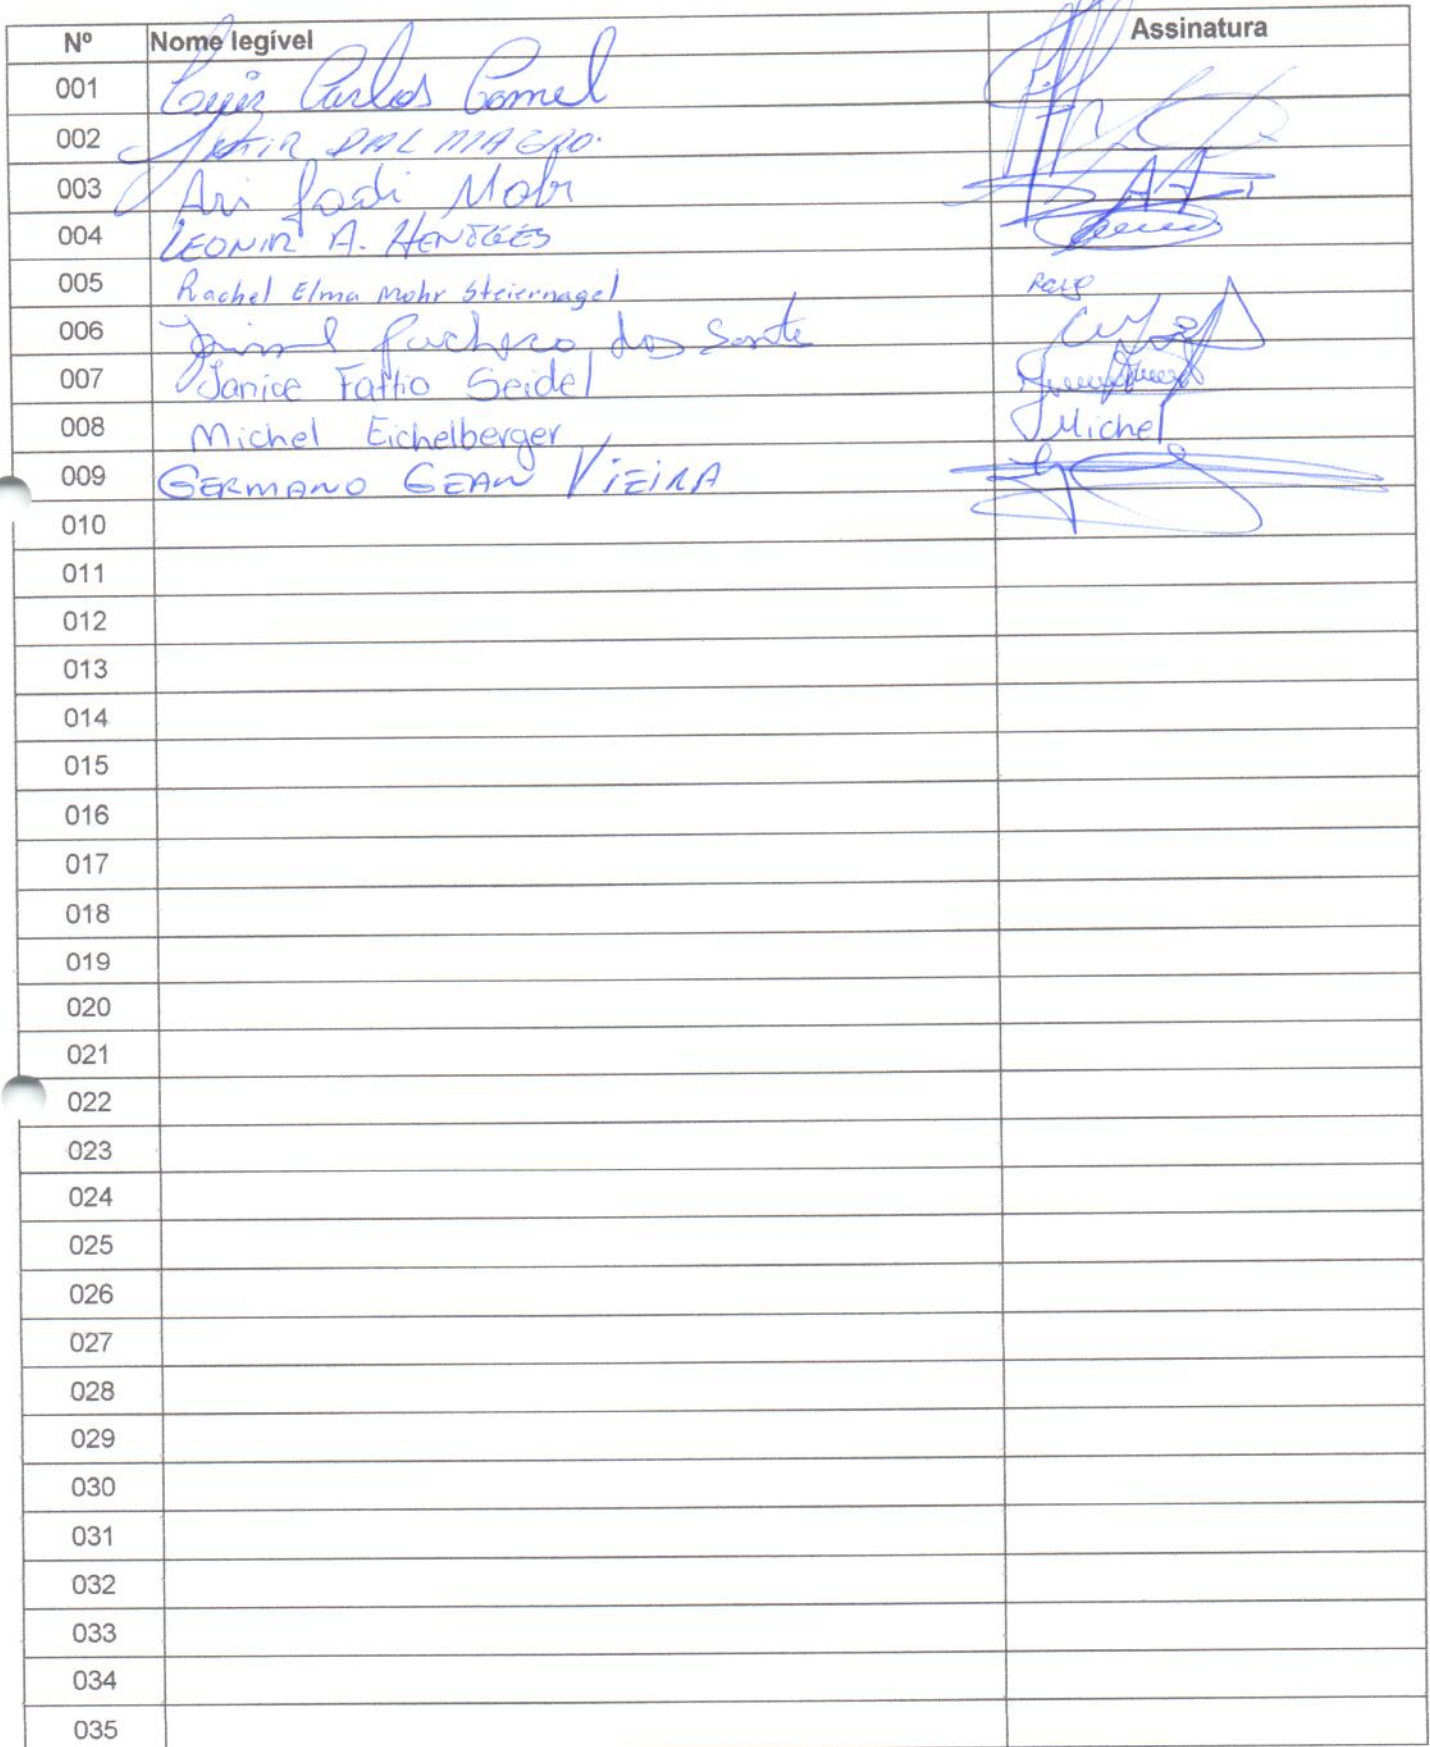 Nº Nome legível Assinatura
001 Luiz Carlos Comel
002 DAL MAGRO.
003 Ari
004 LEONIR A. HENTGES
005 Rachel Elma Mohr Steiernagel
006 Pacheco dos
007 Janice Seidel
008 Michel Eichelberger Michel
009 GERMANO GEAN VIEIRA
010
011
012
013
014
015
016
017
018
019
020
021
022
023
024
025
026
027
028
029
030
031
032
033
034
035